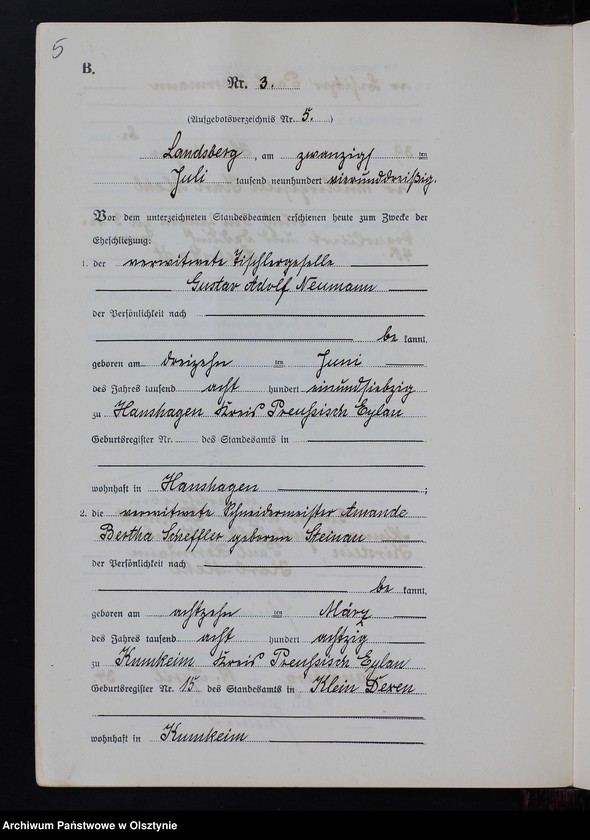 5
B.
Nr. 3.
(Aufgebotsverzeichnis Nr. 5.)
Landsberg, am zwanzigsten
Juli tausend neunhundert vierunddreißig.
Vor dem unterzeichneten Standesbeamten erschienen heute zum Zwecke der
Eheschließung:
1. der verwitwete Tischlergeselle
Gustav Adolf Neumann
der Persönlichkeit nach
be kannt,
geboren am dreizehn ten Juni
des Jahres tausend acht hundert einundsiebzig
zu Hanshagen Kreis Preußisch Eylau
Geburtsregister Nr. des Standesamts in
wohnhaft in Hanshagen ;
2. die verwitwete Schneidermeister Amande
Bertha Scheffler geborene Steinau
der Persönlichkeit nach
be kannt,
geboren am achtzehn ten März
des Jahres tausend acht hundert achtzig
zu Kumkeim Kreis Preußisch Eylau
Geburtsregister Nr. 15 des Standesamts in Klein Dexen
wohnhaft in Kumkeim
Archiwum Państwowe w Olsztynie